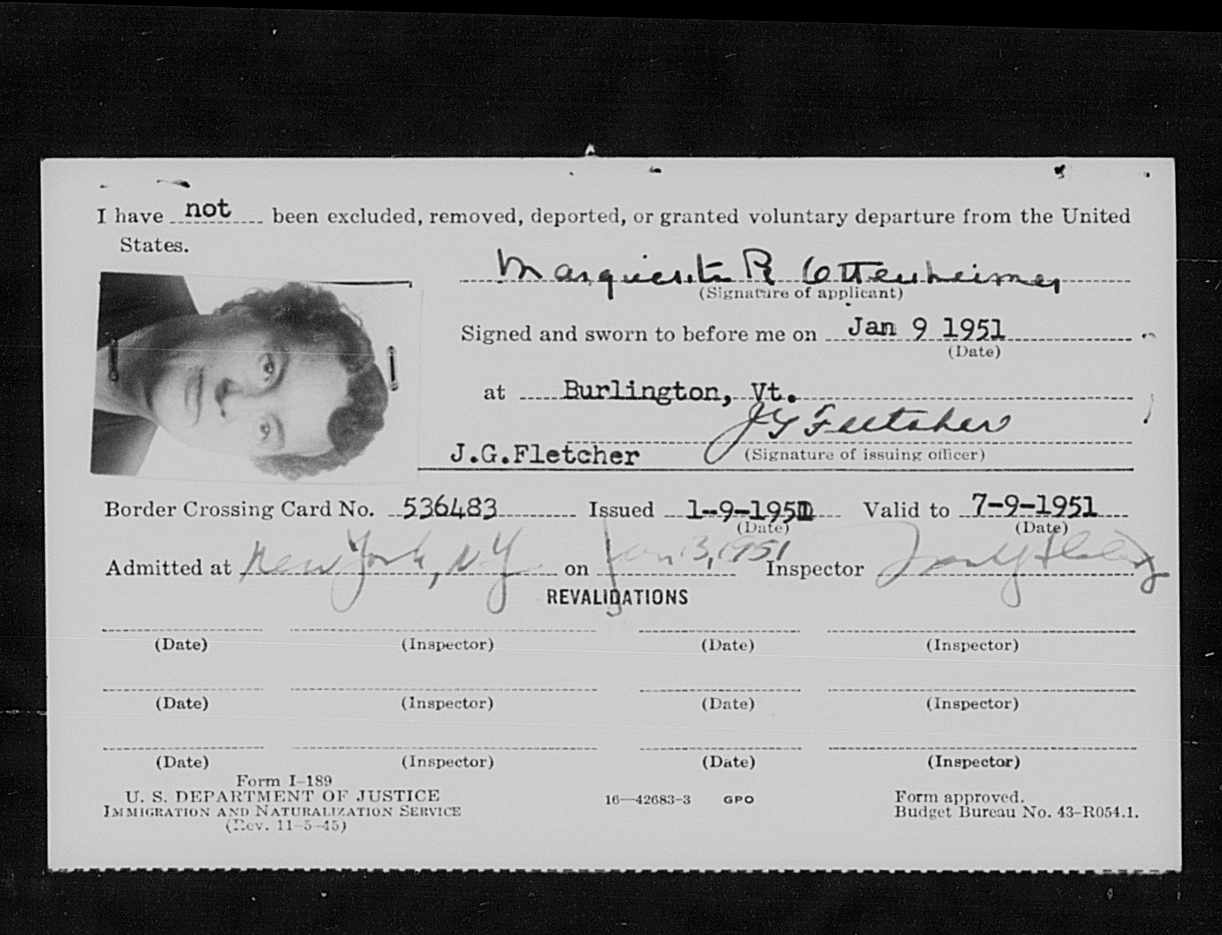 I have not been excluded, removed, deported, or granted voluntary departure from the United
States.
Marguerita R Ottenheimer
(Signature of applicant)
Signed and sworn to before me on Jan 9 1951
(Date)
at Burlington, Vt.
J G Fletcher
J.G.Fletcher (Signature of issuing officer)
Border Crossing Card No. 536483 Issued 1-9-1951 Valid to 7-9-1951
(Date) (Date)
Admitted at New York, NY on Jan 13, 1951 Inspector
REVALIDATIONS
(Date) (Inspector) (Date) (Inspector)
(Date) (Inspector) (Date) (Inspector)
(Date) (Inspector) (Date) (Inspector)
Form I-189
U. S. DEPARTMENT OF JUSTICE 16—42683-3 GPO Form approved.
IMMIGRATION AND NATURALIZATION SERVICE Budget Bureau No. 43-R054.1.
(Rev. 11-5-45)